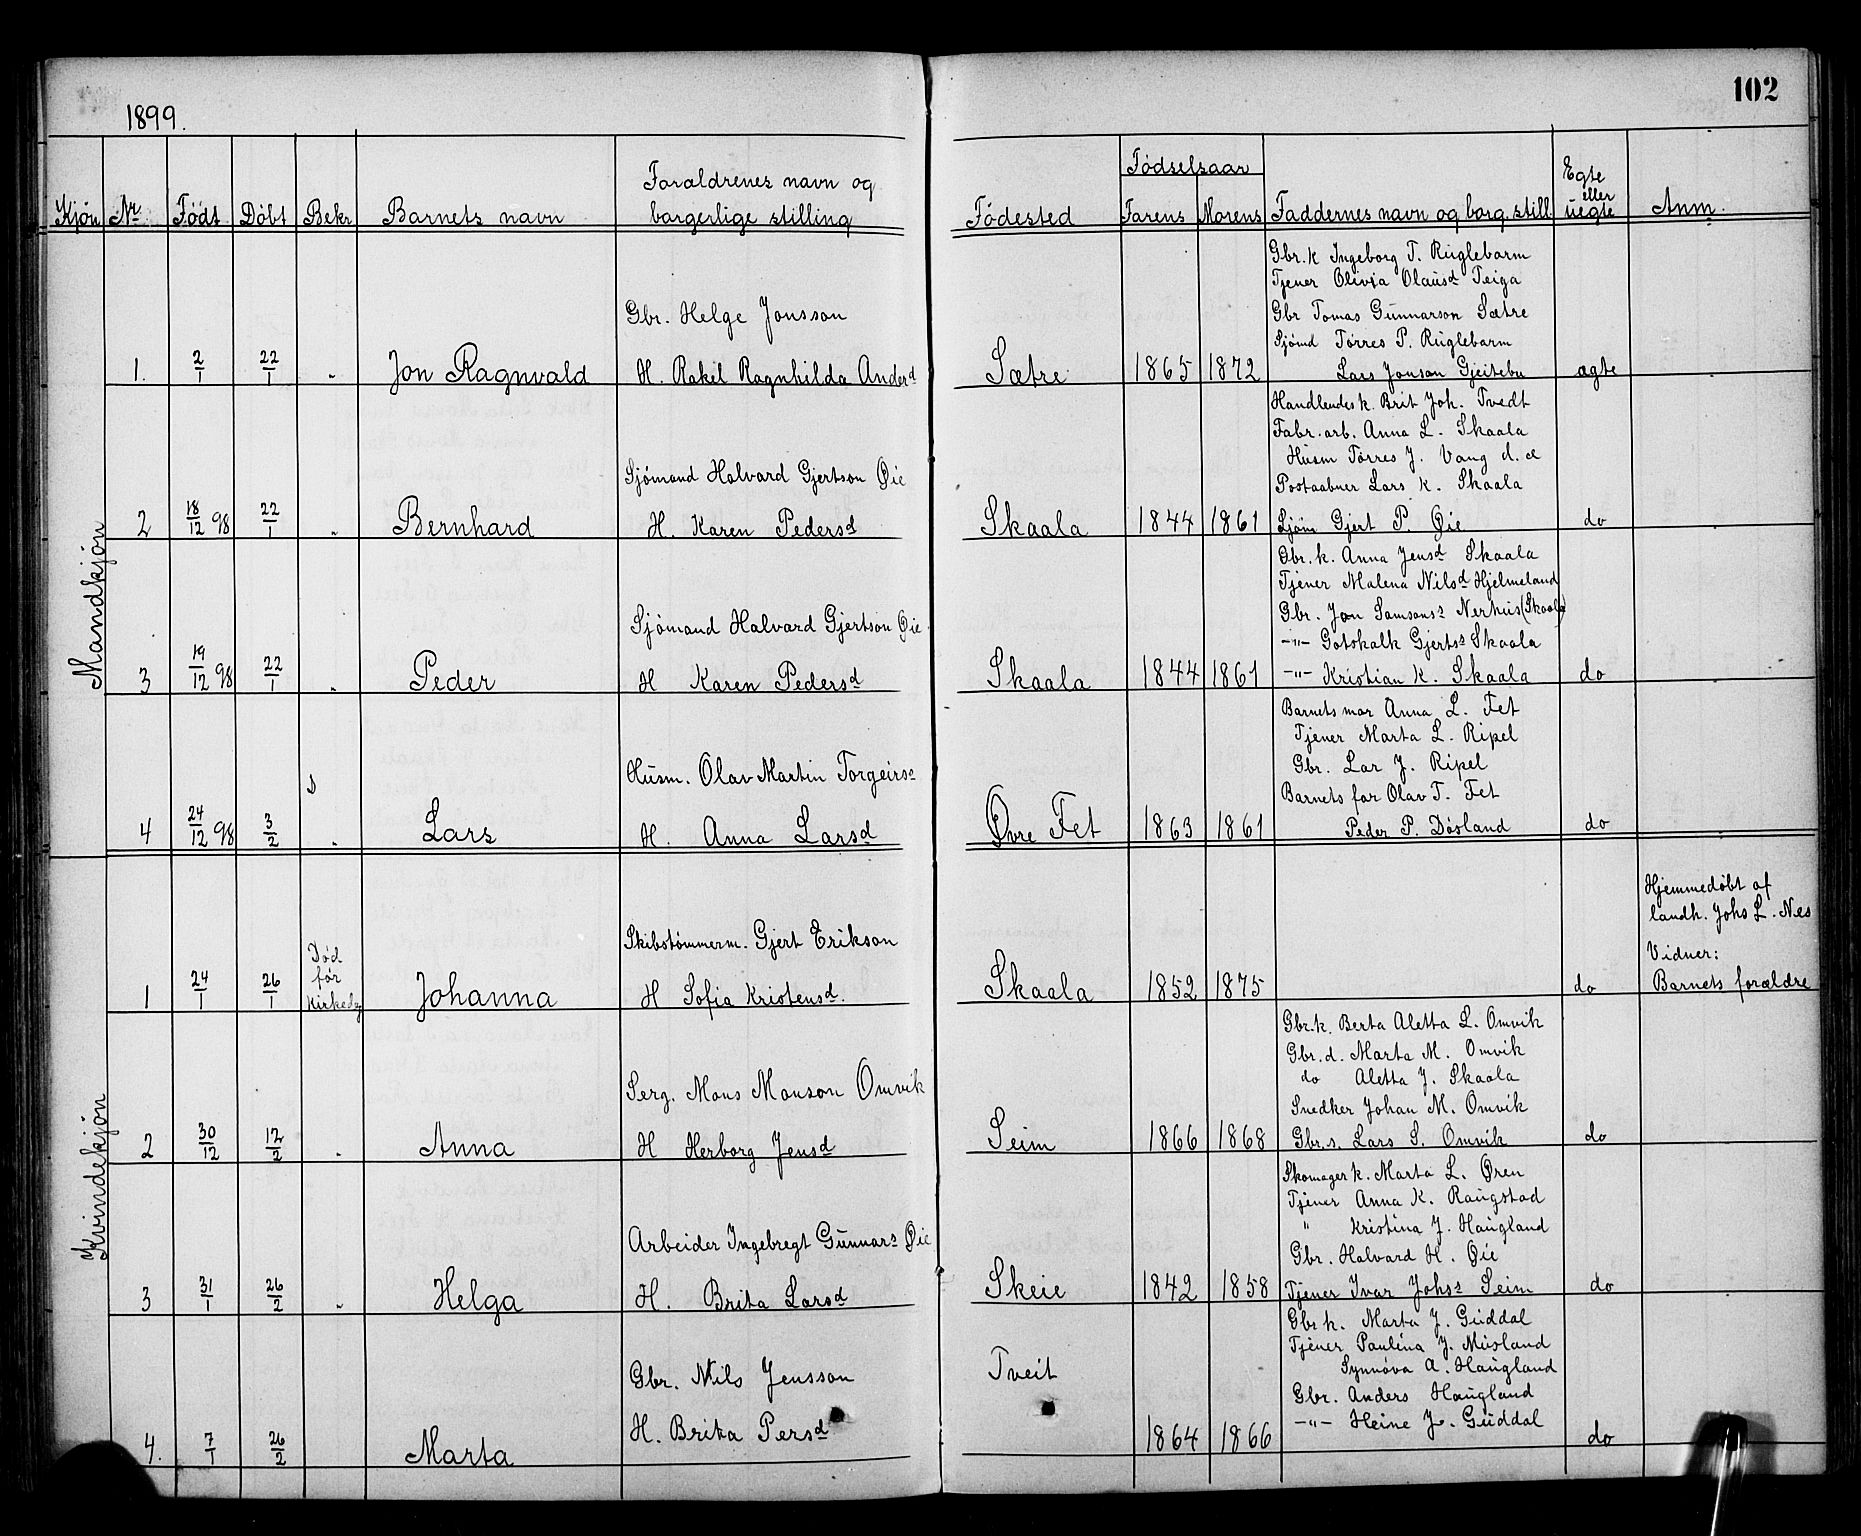 102
1899.
Kjøn Nr. Født Døbt Bekr Barnets navn Forældrenes navn og borgerlige stilling Fødested Fødselsaar Farens Morens Faddernes navn og borg. still. Egte eller uegte Anm.
Mandkjøn
Gbr. k Ingeborg T. Rüglebarm
Tjener Olivia Olausd Teiga
Gbr. Helge Jonsson
Gbr Tomas Gunnarson Sætre
Sjømd Tørres P. Rüglebarm
1. 2/1 22/1 " Jon Ragnvald H. Rakel Ragnhilda Anderd Sætre 1865 1872 Lars Jonson Gjeitebu ægte
Handlendes k. Brit Joh. Tvedt
Fabr. arb. Anna L. Skaala
Husm Tørres J. Vang d. æ
Sjømand Halvard Gjertson Øie
Postaabner Lars K. Skaala
2 18/12 98 22/1 " Bernhard H. Karen Pedersd Skaala 1844 1861 Sjøm Gjert P. Øie do
Gbr. k. Anna Jensd Skaala
Tjener Malena Nilsd Hjelmeland
Gbr. Jon Samsons Nerhus (Skaala)
Sjømand Halvard Gjertson Øie
-"- Gotskalk Gjerts Skaala
3 19/12 98 22/1 " Peder H Karen Pedersd Skaala 1844 1861 -"- Kristian K. Skaala do
Barnets mor Anna L. Fet
Tjener Marta L. Ripel
Gbr. Lar J. Ripel
Husm. Olav Martin Torgeirs
Barnets far Olav T. Fet
4 24/12 98 3/2 " Lars H. Anna Larsd Øvre Fet 1863 1861 Peder P. Døsland do
Kvindekjøn
Hjemmedøbt af
landh. Johs L. Nes
Skibstømmerm. Gjert Erikson
Vidner:
Død
før
1 24/1 26/1 Kirkedg Johanna H Sofia Kristensd. Skaala 1852 1875 do Barnets forældre
Gbr. k. Berta Aletta L. Omvik
Gbr. d. Marta M. Omvik
do Aletta J. Skaala
Serg. Mons Monson Omvik
Snedker Johan M. Omvik
2 30/12 12/2 " Anna H Herborg Jensd Seim 1866 1868 Gbr. s. Lars S. Omvik do
Skomager k. Marta L. Øren
Tjener Anna K. Raugstad
" Kristina J. Haugland
Arbeider Ingebregt Gunnars Øie
Gbr. Halvard H. Øie
3 31/1 26/2 " Helga H. Brita Larsd Skeie 1842 1858 Tjener Ivar Johs Seim do
Gbr k. Marta J. Guddal
Tjener Paulina J. Müsland
Synnøva A. Haugland
Gbr. Nils Jensson Tveit
Gbr. Anders Haugland
H. Brita Persd
-"- Heine J. Guddal
4. 7/1 26/2 Marta 1864 1866 do